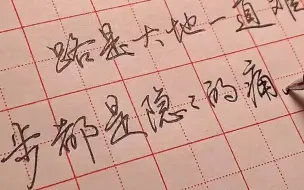 路是大地一道难
步都是隐隐的痛